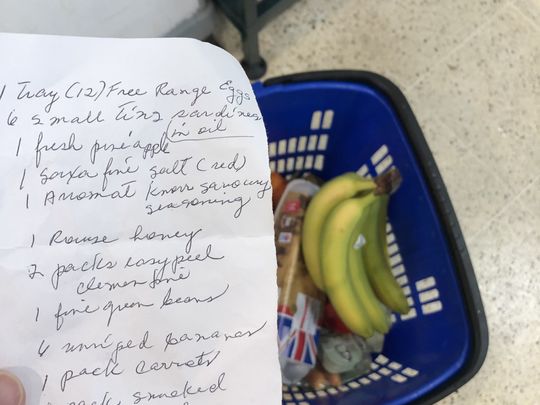 1 Tray (12) Free Range Eggs
6 small tins sardines
in oil
1 fresh pineapple
1 Saxa fine salt (red)
1 Aromat Knorr savoury
seasoning
1 Rowse honey
2 packs easy peel
clementine
1 fine green beans
6 unriped bananas
1 pack carrots
smoked